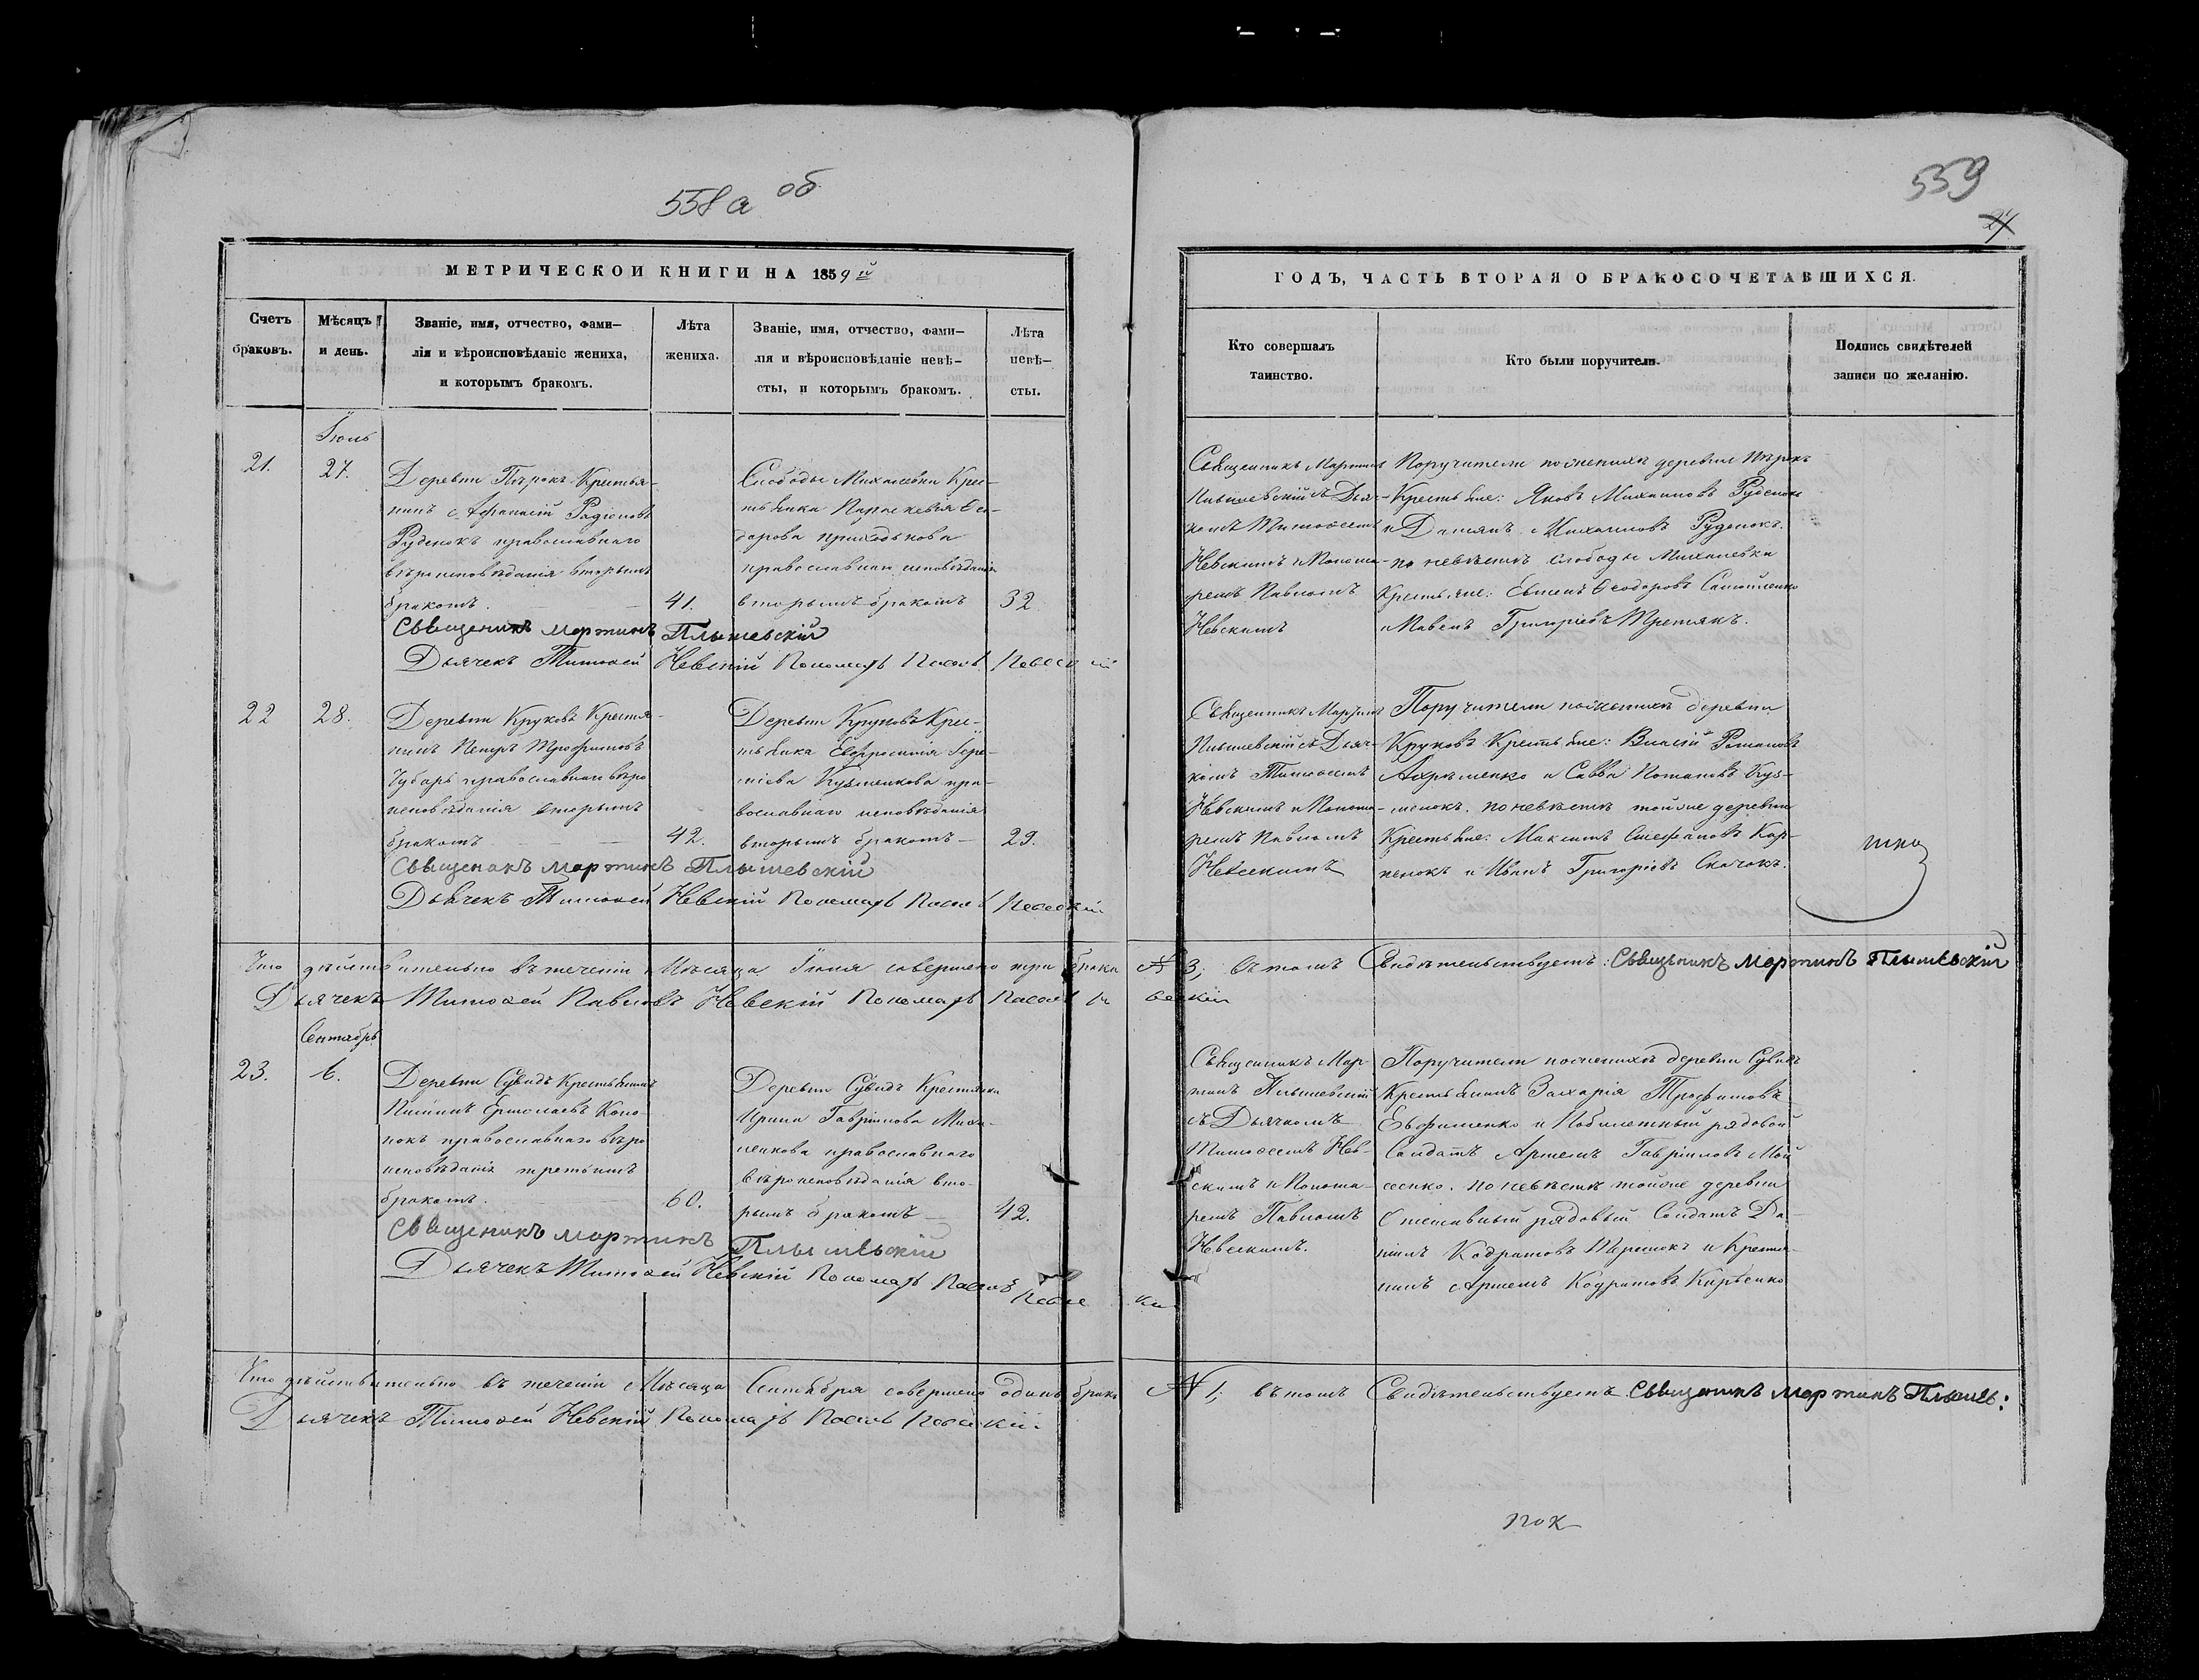 558 а об
559
24
МЕТРИЧЕСКОЙ КНИГИ НА 1859й
ГОДЪ, ЧАСТЬ ВТОРАЯ О БРАКОСОЧЕТАВШИХСЯ.
Счетъ браковъ.
Мѣсяцъ и день.
Званіе, имя, отчество, фами-
лія и вѣроисповѣданіе жениха,
и которымъ бракомъ.
Лѣта жениха.
Званіе, имя, отчество, фами-
лія и вѣроисповѣданіе невѣ-
сты, и которымъ бракомъ.
Лѣта невѣ-
сты.
Кто совершалъ
таинство.
Кто были поручители.
Подпись свидѣтелей
записи по желанію.
21.
27.
Деревни Пѣрокъ Крестья-
нинъ Афанасій Радіоновъ
Руденокъ православнаго
вѣроисповѣданія вторымъ
бракомъ.
41.
Слободы Михалевки Крес-
тьянка Параскевія Ѳео-
дорова
православнаго исповѣданія
вторымъ бракомъ
32
Священникъ Мартинъ
Плышевскій съ Дья-
комъ Тимоѳеемъ
Невскимъ и Понома-
ремъ Павломъ
Невскимъ
Поручители по женихѣ деревни Пѣрокъ
Крестьяне: Яковъ Михаиловъ Руденокъ
и Даміянъ Михаиловъ Руденокъ.
по невѣстѣ слободы Михалевки
Крестьяне: Ѳеодоровъ
и Павелъ Григоріевъ Третякъ.
Священикъ Мартинъ Плышевскій
Дьячекъ Тимоѳей Невскій Пономарь Павелъ Невскій
22
28.
Деревни Круковъ Крестья-
нинъ Петръ Трофимовъ
Чубаръ православнаго вѣро
исповѣданія вторымъ
бракомъ
42.
Деревни Круковъ Крес-
тьянка Евфросинія
Кузменкова пра-
вославнаго исповѣданія
вторымъ бракомъ
29.
Священникъ Мартинъ
Плышевскій съ Дьяч-
комъ Тимоѳеемъ
Невскимъ и Понома-
ремъ Павломъ
Невскимъ
Поручители по женихѣ деревни
Круковъ Крестьяне: Власій Романовъ
Ахрѣменко и Савва Потаповъ Куз-
менокъ. по невѣстѣ тойже деревни
Крестьяне: Максимъ Стефановъ Кор-
ненокъ и Иванъ Григоріевъ Скачокъ.
Священикъ Мартинъ Плышевскій
Дьячекъ Тимоѳей Невскій Пономарь Павелъ Невскій
Что дѣйствительно въ теченіи Мѣсяца Іюля совершено три брака № 3, въ томъ Свидѣтельствуетъ: Священикъ Мартинъ Плышевскій
Дьячекъ Тимоѳей Павловъ Невскій Пономарь Павелъ Невскій
Сентябрь
23.
6.
Деревни Сувидъ Крестьянинъ
Ермолаевъ Коно-
нокъ православнаго вѣро
исповѣданія третьимъ
бракомъ.
60.
Деревни Сувидъ Крестянка
Ирина Гавріилова Миха-
ленкова православнаго
вѣроисповѣданія вто-
рымъ бракомъ
42.
Священникъ Мар-
тинъ Плышевскій
съ Дьячкомъ
Тимоѳеемъ Нев-
скимъ и Понома-
ремъ Павломъ
Невскимъ.
Поручители по женихѣ деревни Сувидъ
Крестьянинъ Захарія Трофимовъ
Евфименко и рядовой
Солдатъ Артемъ Гавріиловъ Мой
сеенко. по невѣстѣ тойже деревни
Отставный рядовый Солдатъ Да-
ніилъ Кодратовъ и Крестья-
нинъ Артемъ Кодратовъ Кирѣенко
Священикъ Мартинъ Плышевскій
Дьячекъ Тимоѳей Невскій Пономарь Павелъ Невскій
Что дѣйствительно въ теченіи Мѣсяца Сентября совершено одинъ бракъ № 1, въ томъ Свидѣтельствуетъ Священикъ Мартинъ Плышев:
Дьячекъ Тимоѳей Невскій Пономарь Павелъ Невскій